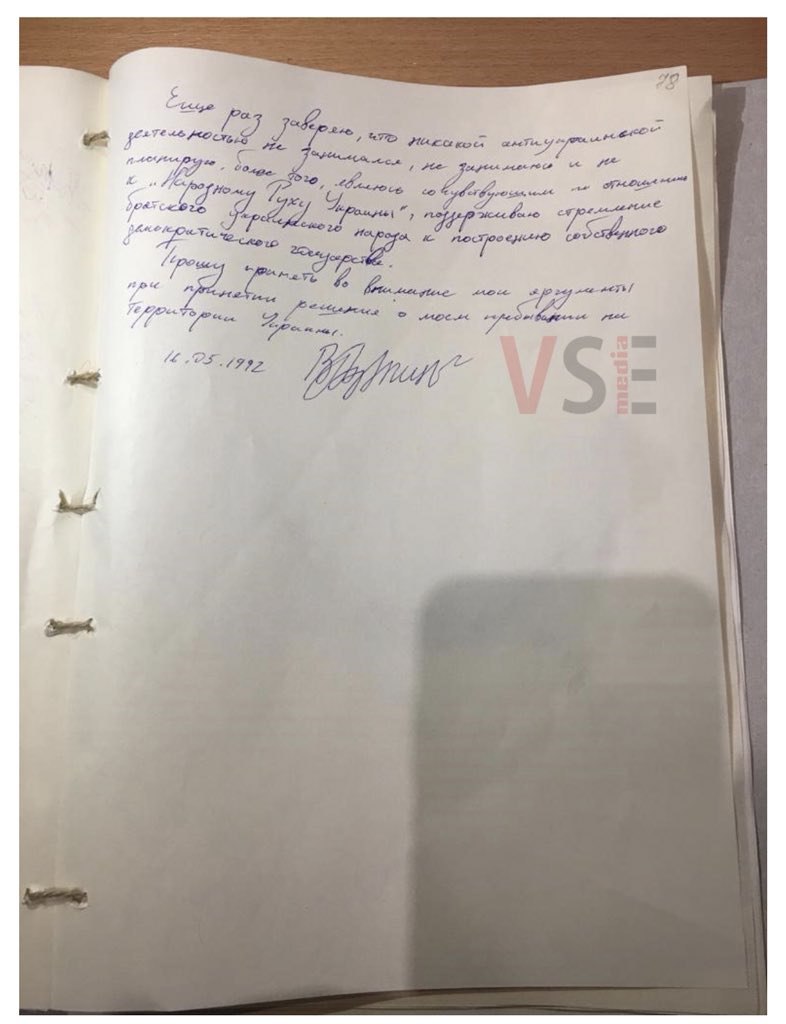 78
Еще раз заверяю, что никакой антиукраинской
деятельностью не занимался, не занимаюсь и не
планирую. Более того, являюсь сочувствующим по отношению
к „Народному Руху Украины“, поддерживаю стремление
братского украинского народа к построению собственного
демократического государства.
Прошу принять во внимание мои аргументы
при принятии решения о моем пребывании на
территории Украины.
16.05.1992
VSE
media